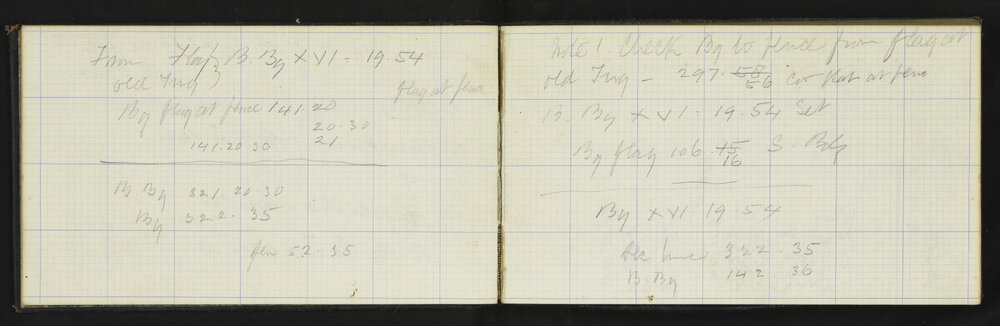 From Flag } B. Bg XVI = 19.54
old Trig }
flag at fence
Bg flag at fence 141 20
20.30
21
141.20 30
B. Bg 321.20.30
Bg 322.35
fence 52.35
Note! Check Bg to fence from flag at
old Trig - 297. 58
56 at fence
B. Bg XVI = 19.54 Set
Bg flag 106. 15 S.
16
Bg XVI. 19.54
322.35
B. Bg 142 36